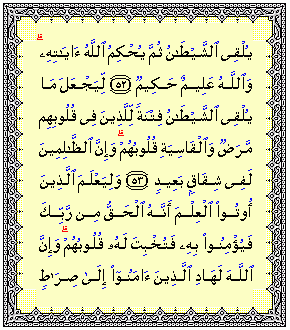 يُلْقِى ٱلشَّيْطَـٰنُ ثُمَّ يُحْكِمُ ٱللَّهُ ءَايَـٰتِهِۦ
وَٱللَّهُ عَلِيمٌ حَكِيمٌ ﴿٥٢﴾ لِّيَجْعَلَ مَا
يُلْقِى ٱلشَّيْطَـٰنُ فِتْنَةً لِّلَّذِينَ فِى قُلُوبِهِم
مَّرَضٌ وَٱلْقَاسِيَةِ قُلُوبُهُمْ ۗ وَإِنَّ ٱلظَّـٰلِمِينَ
لَفِى شِقَاقٍۭ بَعِيدٍ ﴿٥٣﴾ وَلِيَعْلَمَ ٱلَّذِينَ
أُوتُوا۟ ٱلْعِلْمَ أَنَّهُ ٱلْحَقُّ مِن رَّبِّكَ
فَيُؤْمِنُوا۟ بِهِۦ فَتُخْبِتَ لَهُۥ قُلُوبُهُمْ ۗ وَإِنَّ
ٱللَّهَ لَهَادِ ٱلَّذِينَ ءَامَنُوٓا۟ إِلَىٰ صِرَٰطٍ